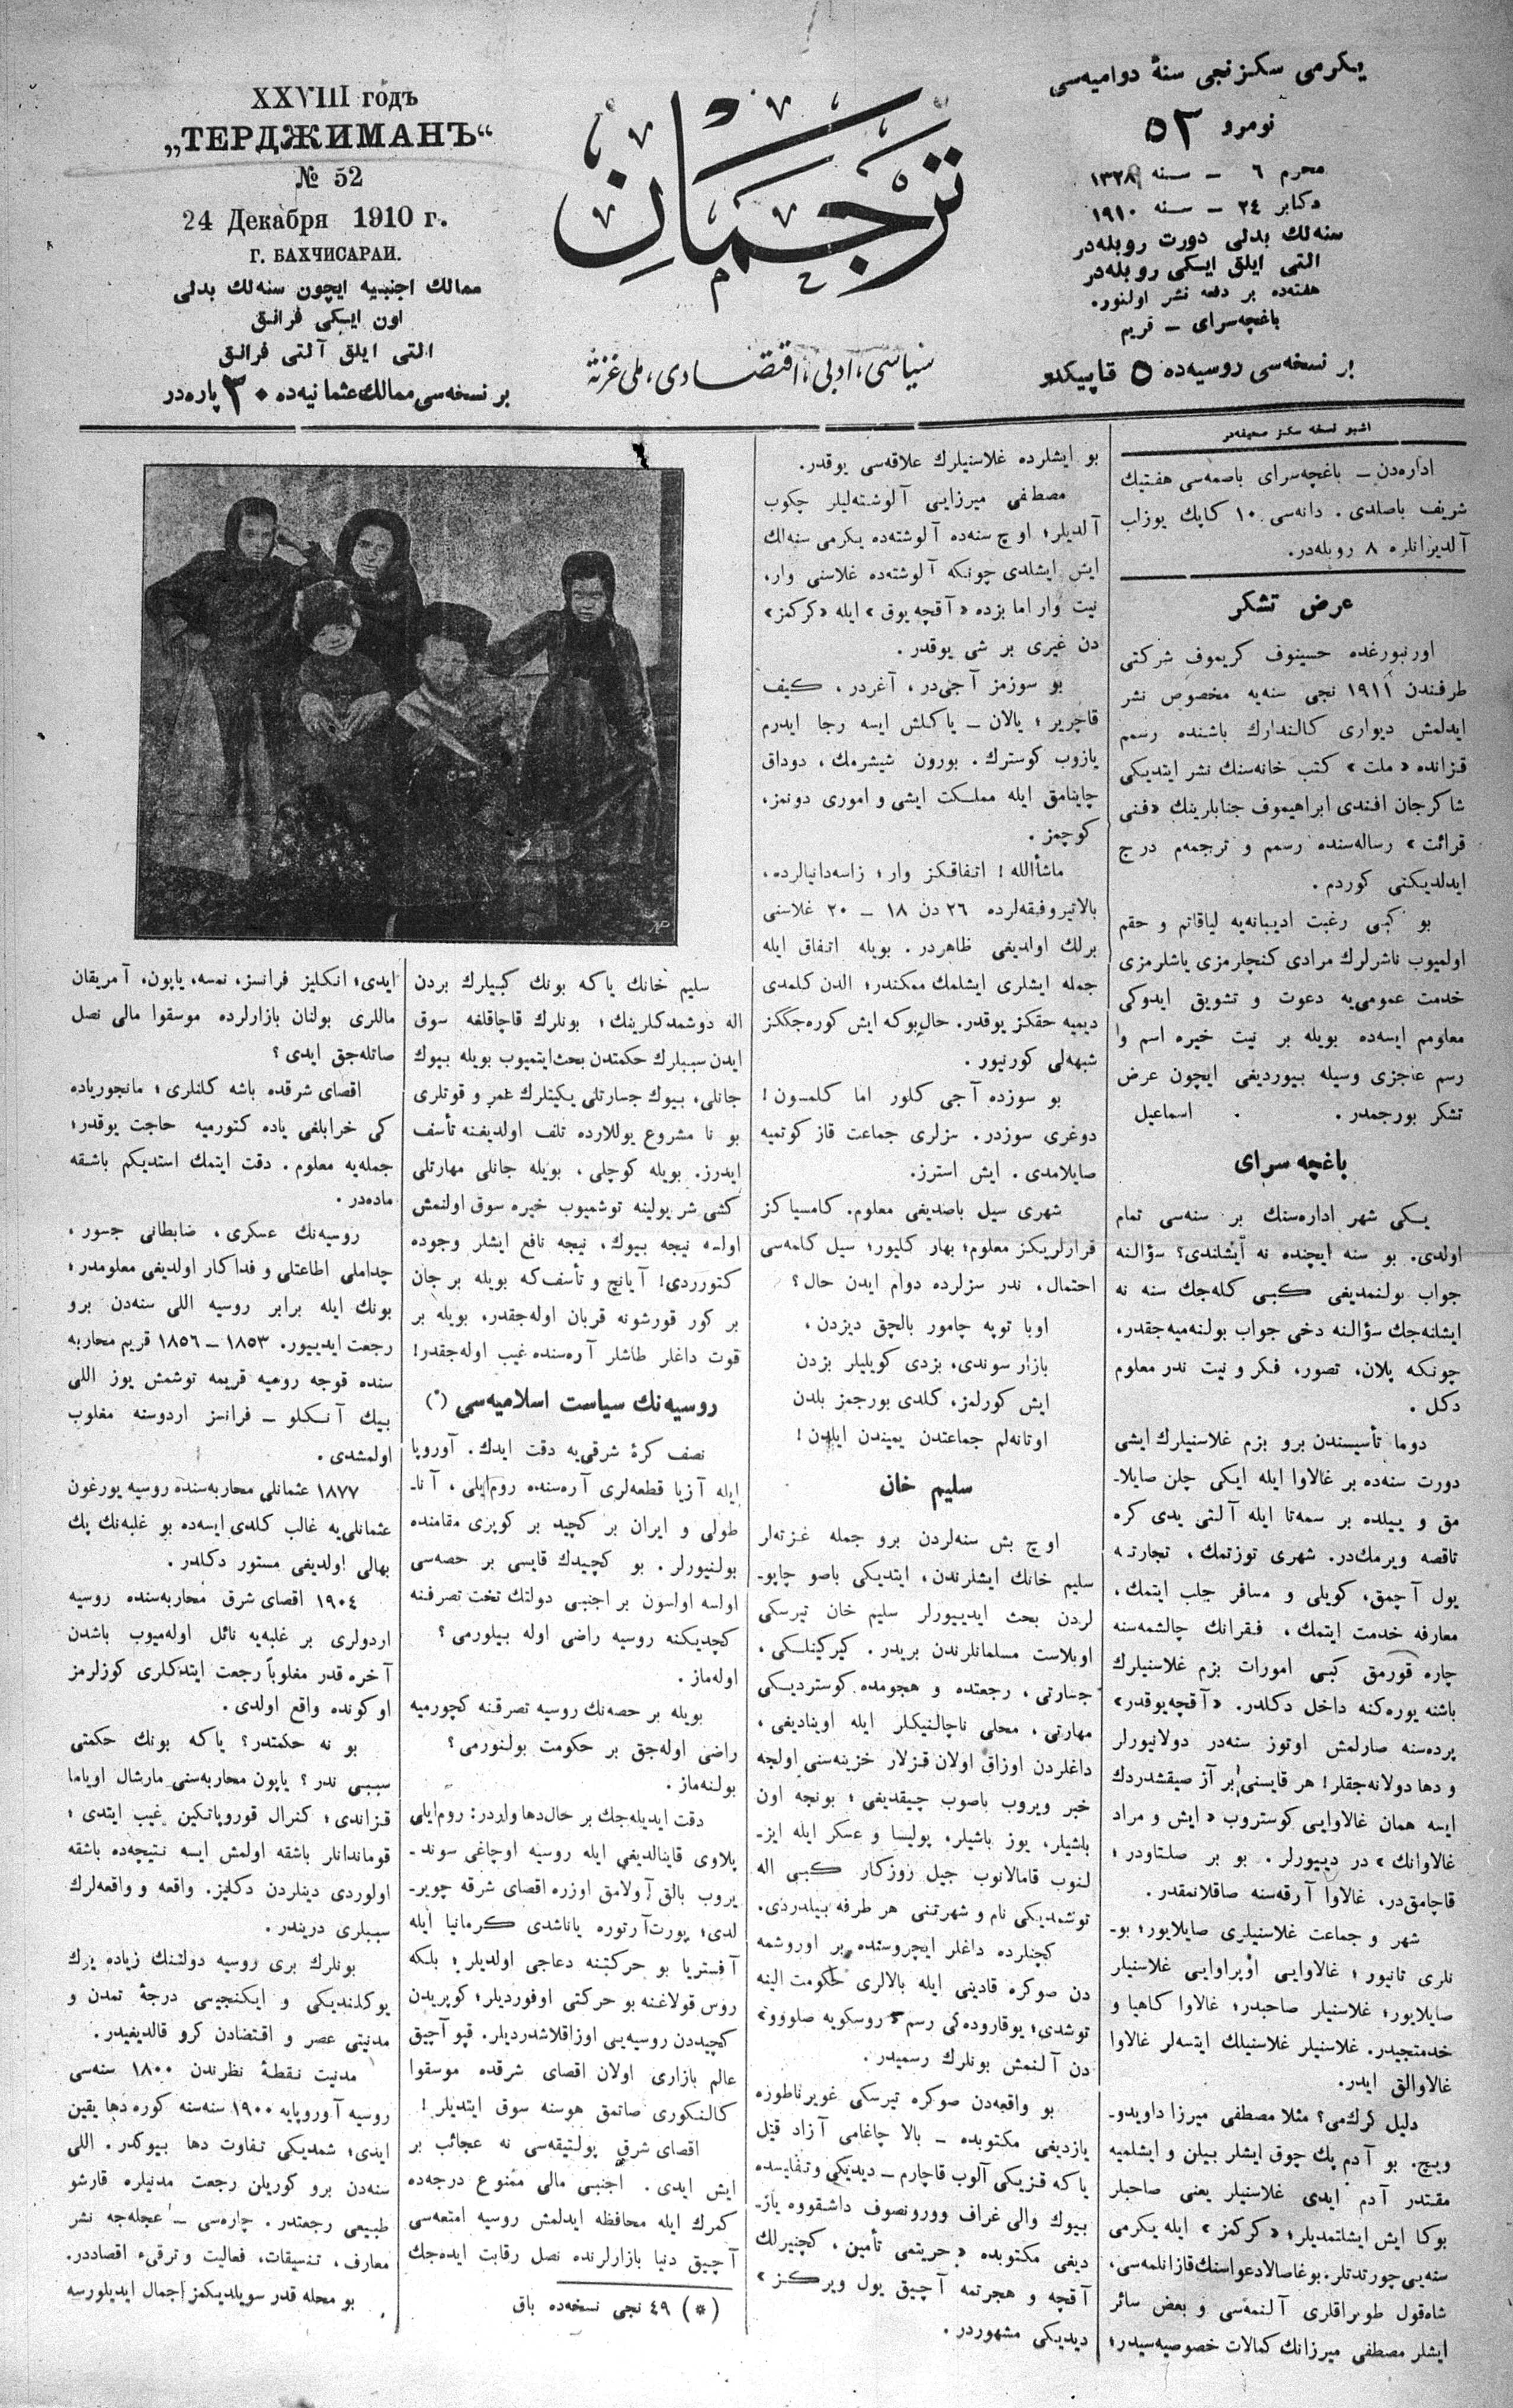 XXVIII годъ
„ТЕРДЖИМАНЪ“
№ 52
24 Декабря 1910 г.
Г. БАХЧИСАРАИ.
ممالك اجنبیه ایچون سنه‌لك بدلی
اون ایكی فرانق
التی ایلق آلتی فرانق
بر نسخه‌سی ممالك عثمانیه‌ده ۳۰ پاره‌در
ترجمان
سیاسی، ادبی، اقتصادی، ملی غزته
یكرمی سكزنجی سنۀ دوامیه‌سی
نومرو ۵۲
محرم ٦ – سنه ۱۳۲۸
دكابر ۲٤ – سنه ۱۹۱۰
سنه‌لك بدلی دورت روبله‌در
التی ایلق ایكی روبله‌در
هفته‌ده بر دفعه نشر اولنور.
باغچه‌سرای – قریم
بر نسخه‌سی روسیه‌ده ۵ قاپیكدر
اشبو نسخه سكز صحیفه‌در
اداره‌دن – باغچه‌سرای باصمه‌سی هفتیك
شریف باصلدی. دانه‌سی ۱۰ كاپك یوزلب
آلدیرانلره ۸ روبله‌در.
عرض تشكر
اورنبورغده حسینوف كریموف شركتی
طرفندن ۱۹۱۱ نجی سنه‌یه مخصوص نشر
ایدلمش دیواری كالندارك باشنده رسمم
قزانده «ملت» كتب خانه‌سنك نشر ایتدیكی
شاكرجان افندی ابراهیموف جنابلرینك «فنی
قرائت» رساله‌سنده رسمم و ترجمه‌م درج
ایدلدیكنی كوردم.
بو كبی رغبت ادیبانه‌یه لیاقاتم و حقم
اولمیوب ناشرلرك مرادی كنچلرمزی یاشلرمزی
خدمت عمومی‌یه دعوت و تشویق ایدوكی
معلومم ایسه‌ده بویله بر نیت خیره اسم و
رسم عاجزی وسیله بیوردیغی ایچون عرض
تشكر بورجمدر. اسماعیل
باغچه سرای
یكی شهر اداره‌سنك بر سنه‌سی تمام
اولدی. بو سنه ایچنده نه ایشلندی؟ سؤالنه
جواب بولنمدیغی كبی كله‌جك سنه نه
ایشلنه‌جك سؤالنه دخی جواب بولنه‌میه‌جقدر،
چونكه پلان، تصور، فكر و نیت ندر معلوم
دكل.
دوما تأسیسندن برو بزم غلاسنیلرك ایشی
دورت سنه‌ده بر غالاوا ایله ایكی چلن صایلا-
مق و ییلده بر سمه‌تا ایله آلتی یدی كره
تاقصه ویرمك‌در. شهری توزتمك، تجارته
یول آچمق، كویلی و مسافر جلب ایتمك،
معارفه خدمت ایتمك، فقرانك چالشمه‌سنه
چاره قورمق كبی امورات بزم غلاسنیلرك
باشنه یوره‌كنه داخل دكلدر. «آقچه‌یوقدر»
پرده‌سنه صارلمش اوتوز سنه‌در دولانیورلر
و دها دولانه‌جقلر! هر قایسنی بر آز صیقشدردك
ایسه همان غالاوایی كوستروب «ایش و مراد
غالاوانك» در دییورلر. بو بر صلتاودر؛
قاچامق‌در، غالاوا آرقه‌سنه صاقلانمقدر.
شهر و جماعت غلاسنیلری صایلایور؛ بو-
نلری تانیور؛ غالاوایی اوپراوایی غلاسنیلر
صایلایور؛ غلاسنیلر صاحبدر؛ غالاوا كاهیا و
خدمتجیدر. غلاسنیلر غلاسنیلك ایتسه‌لر غالاوا
غالاوالق ایدر.
دلیل كرك‌می؟ مثلا مصطفی میرزا داویدو-
ویچ. بو آدم پك چوق ایشلر بیلن و ایشلمیه
مقتدر آدم ایدی غلاسنیلر یعنی صاحبلر
بوكا ایش ایشلتمدیلر؛ «كركمز» ایله یكرمی
سنه‌یی چورتدتلر. بوغاصالا دعواسنك قازانلمه‌سی،
شاه‌قول طوپراقلری آلنمه‌سی و بعض سائر
ایشلر مصطفی میرزانك كمالات خصوصیه‌سیدر؛
بو ایشلرده غلاسنیلرك علاقه‌سی یوقدر.
مصطفی میرزایی آلوشته‌لیلر چكوب
آلدیلر؛ اوچ سنه‌ده آلوشته‌ده یكرمی سنه‌لك
ایش ایشلدی چونكه آلوشته‌ده غلاسنی وار،
نیت وار اما بزده «آقچه یوق» ایله «كركمز»
دن غیری بر شی یوقدر.
بو سوزمز آجی‌در، آغردر، كیف
قاچریر؛ یالان – یاكلش ایسه رجا ایدرم
یازوب كوسترك. بورون شیشرمك، دوداق
چاینامق ایله مملكت ایشی و اموری دونمز،
كوچمز.
ماشأالله! اتفاقكز وار؛ زاسه‌دانیالرده،
بالاتیروفیقه‌لرده ۲٦ دن ۱۸ – ۲۰ غلاسنی
برلك اولدیغی ظاهردر. بویله اتفاق ایله
جمله ایشلری ایشلمك ممكندر؛ الدن كلمدی
دیمیه حقكز یوقدر. حال‌بوكه ایش كوره‌جككز
شبهه‌لی كورنیور.
بو سوزده آجی كلور اما كلمسون!
دوغری سوزدر. سزلری جماعت قاز كوتمیه
صایلامدی. ایش استرز.
شهری سیل باصدیغی معلوم. كامسیاكز
قرارلریكز معلوم؛ بهار كلیور؛ سیل كلمه‌سی
احتمال، ندر سزلرده دوام ایدن حال؟
اوبا توپه چامور بالچق دیزدن،
بازار سوندی، بزدی كویلیلر بزدن
ایش كورلمز، كلدی بورجمز بلدن
اوتانه‌لم جماعتدن یمیندن ایلدن!
سلیم خان
اوچ بش سنه‌لردن برو جمله غزته‌لر
سلیم خانك ایشلرندن، ایتدیكی باصو چاپو-
لردن بحث ایدییورلر سلیم خان تیرسكی
اوبلاست مسلمانلرندن بریدر. كیركینلكی،
جسارتی، رجعتده و هجومده كوستردیكی
مهارتی، محلی ناچالنیكلر ایله اوینادیغی،
داغلردن اوزاق اولان قزلار خزینه‌سنی اولجه
خبر ویروب باصوب چیقدیغی؛ بونجه اون
باشیلر، یوز باشیلر، پولیسا و عسكر ایله ایز-
لنوب قامالانوب جیل روزكار كبی اله
توشمدیكی نام و شهرتنی هر طرفه بیلدردی.
كچنلرده داغلر ایچروسنده بر اوروشمه
دن صوكره قادینی ایله بالالری حكومت الینه
توشدی؛ یوقاروده‌كی رسم «روسكویه صلووو»
دن آلنمش بونلرك رسمیدر.
بو واقعه‌دن صوكره تیرسكی غوبرناطوره
یازدیغی مكتوبده – بالا چاغامی آزاد قیل
یاكه قزیكی آلوب قاچارم – دیدیكی و تفلیسده
بیوك والی غراف وورونصوف داشقووه یاز-
دیغی مكتوبده «حریتمی تأمین، كچنیرلك
آقچه و هجرتمه آچیق یول ویركز»
دیدیكی مشهوردر.
سلیم خانك یاكه بونك كبیلرك بردن
اله دوشمدكلرینك؛ بونلرك قاچاقلغه سوق
ایدن سببلرك حكمتدن بحث ایتمیوب بویله بیوك
جانلی، بیوك جسارتلی یكیتلرك عمر و قوتلری
بو نا مشروع یوللارده تلف اولدیغنه تأسف
ایدرز. بویله كوچلی، بویله جانلی مهارتلی
كشی شر یولینه توشمیوب خیره سوق اولنمش
اولـه نیجه بیوك، نیجه نافع ایشلر وجوده
كتورردی! آیانچ و تأسف‌كه بویله بر جان
بر كور قورشونه قربان اوله‌جقدر، بویله بر
قوت داغلر طاشلر آره‌سنده غیب اوله‌جقدر!
روسیه‌نك سیاست اسلامیه‌سی (*)
نصف كرۀ شرقی‌یه دقت ایدك. آوروپا
ایله آزیا قطعه‌لری آره‌سنده روم‌ایلی، آنا-
طولی و ایران بر كچید بر كوپری مقامنده
بولنیورلر. بو كچیدك قایسی بر حصه‌سی
اولسه اولسون بر اجنبی دولتك تخت تصرفنه
كچدیكنه روسیه راضی اوله بیلورمی؟
اوله‌ماز.
بویله بر حصه‌نك روسیه تصرفنه كچورمیه
راضی اوله‌جق بر حكومت بولنورمی؟
بولنه‌ماز.
دقت ایدیله‌جك بر حال‌دها واردر: روم‌ایلی
پلاوی قاینالدیغی ایله روسیه اوچاغی سوند-
یروب بالق آولامق اوزره اقصای شرقه چویر-
لدی؛ پورت‌آرتوره یاناشدی كرمانیا ایله
آفستریا بو حركتنه دعاجی اولدیلر؛ بلكه
روس قولاغنه بو حركتی اوفوردیلر؛ كوپریدن
كچیددن روسیه‌یی اوزاقلاشدردیلر. قپو آچیق
عالم بازاری اولان اقصای شرقده موسقوا
كالنكوری صاتمق هوسنه سوق ایتدیلر!
اقصای شرق پولتیقه‌سی نه عجائب بر
ایش ایدی. اجنبی مالی ممنوع درجه‌ده
كمرك ایله محافظه ایدلمش روسیه امتعه‌سی
آچیق دنیا بازارلرنده نصل رقابت ایده‌جك
(*) ٤۹ نجی نسخه‌ده باق
ایدی؛ انكلیز فرانسز، نمسه، یاپون، آمریقان
ماللری بولنان بازارلرده موسقوا مالی نصل
صاتله‌جق ایدی؟
اقصای شرقده باشه كلنلری؛ مانجوریاده
كی خرابلغی یاده كتورمیه حاجت یوقدر؛
جمله‌یه معلوم. دقت ایتمك استدیكم باشقه
ماده‌در.
روسیه‌نك عسكری، ضابطانی جسور،
چداملی اطاعتلی و فداكار اولدیغی معلومدر؛
بونك ایله برابر روسیه اللی سنه‌دن برو
رجعت ایدییور. ۱۸۵۳ – ۱۸۵٦ قریم محاربه
سنده قوجه روسیه قریمه توشمش یوز اللی
بیك آنكلو – فرانسز اردوسنه مغلوب
اولمشدی.
۱۸۷۷ عثمانلی محاربه‌سنده روسیه یورغون
عثمانلی‌یه غالب كلدی ایسه‌ده بو غلبه‌نك پك
بهالی اولدیغی مستور دكلدر.
۱۹۰٤ اقصای شرق محاربه‌سنده روسیه
اردولری بر غلبه‌یه نائل اوله‌میوب باشدن
آخره قدر مغلوباً رجعت ایتدكلری كوزلرمز
اوكونده واقع اولدی.
بو نه حكمتدر؟ یاكه بونك حكمتی
سببی ندر؟ یاپون محاربه‌سنی مارشال اویاما
قزاندی؛ كنرال قوروپاتكین غیب ایتدی؛
قوماندانلر باشقه اولمش ایسه نتیجه‌ده باشقه
اولوردی دینلردن دكلیز. واقعه و واقعه‌لرك
سببلری دریندر.
بونلرك بری روسیه دولتنك زیاده یرك
یوكلندیكی و ایكنجیسی درجۀ تمدن و
مدنیتی عصر و اقتضادن كرو قالدیغیدر.
مدنیت نقطۀ نظرندن ۱۸۰۰ سنه‌سی
روسیه آوروپایه ۱۹۰۰ سنه‌سنه كوره دها یقین
ایدی؛ شمدیكی تفاوت دها بیوكدر. اللی
سنه‌دن برو كوریلن رجعت مدنیلره قارشو
طبیعی رجعتدر. چاره‌سی – عجله‌جه نشر
معارف، تنسیقات، فعالیت و ترقیء اقصاددر.
بو محله قدر سویلدیكمز اجمال ایدیلورسه